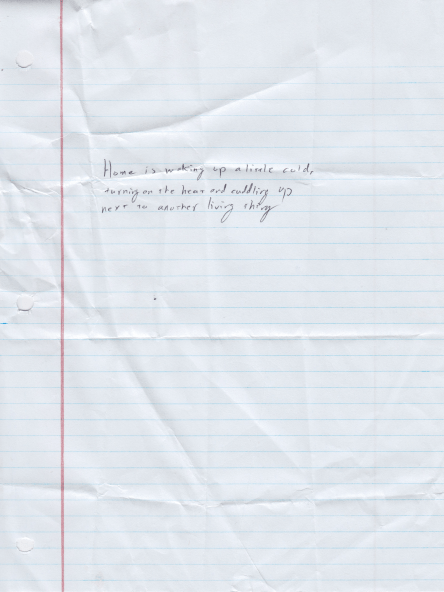 Home is waking up a little cold,
turning on the heat and cuddling up
next to another living thing